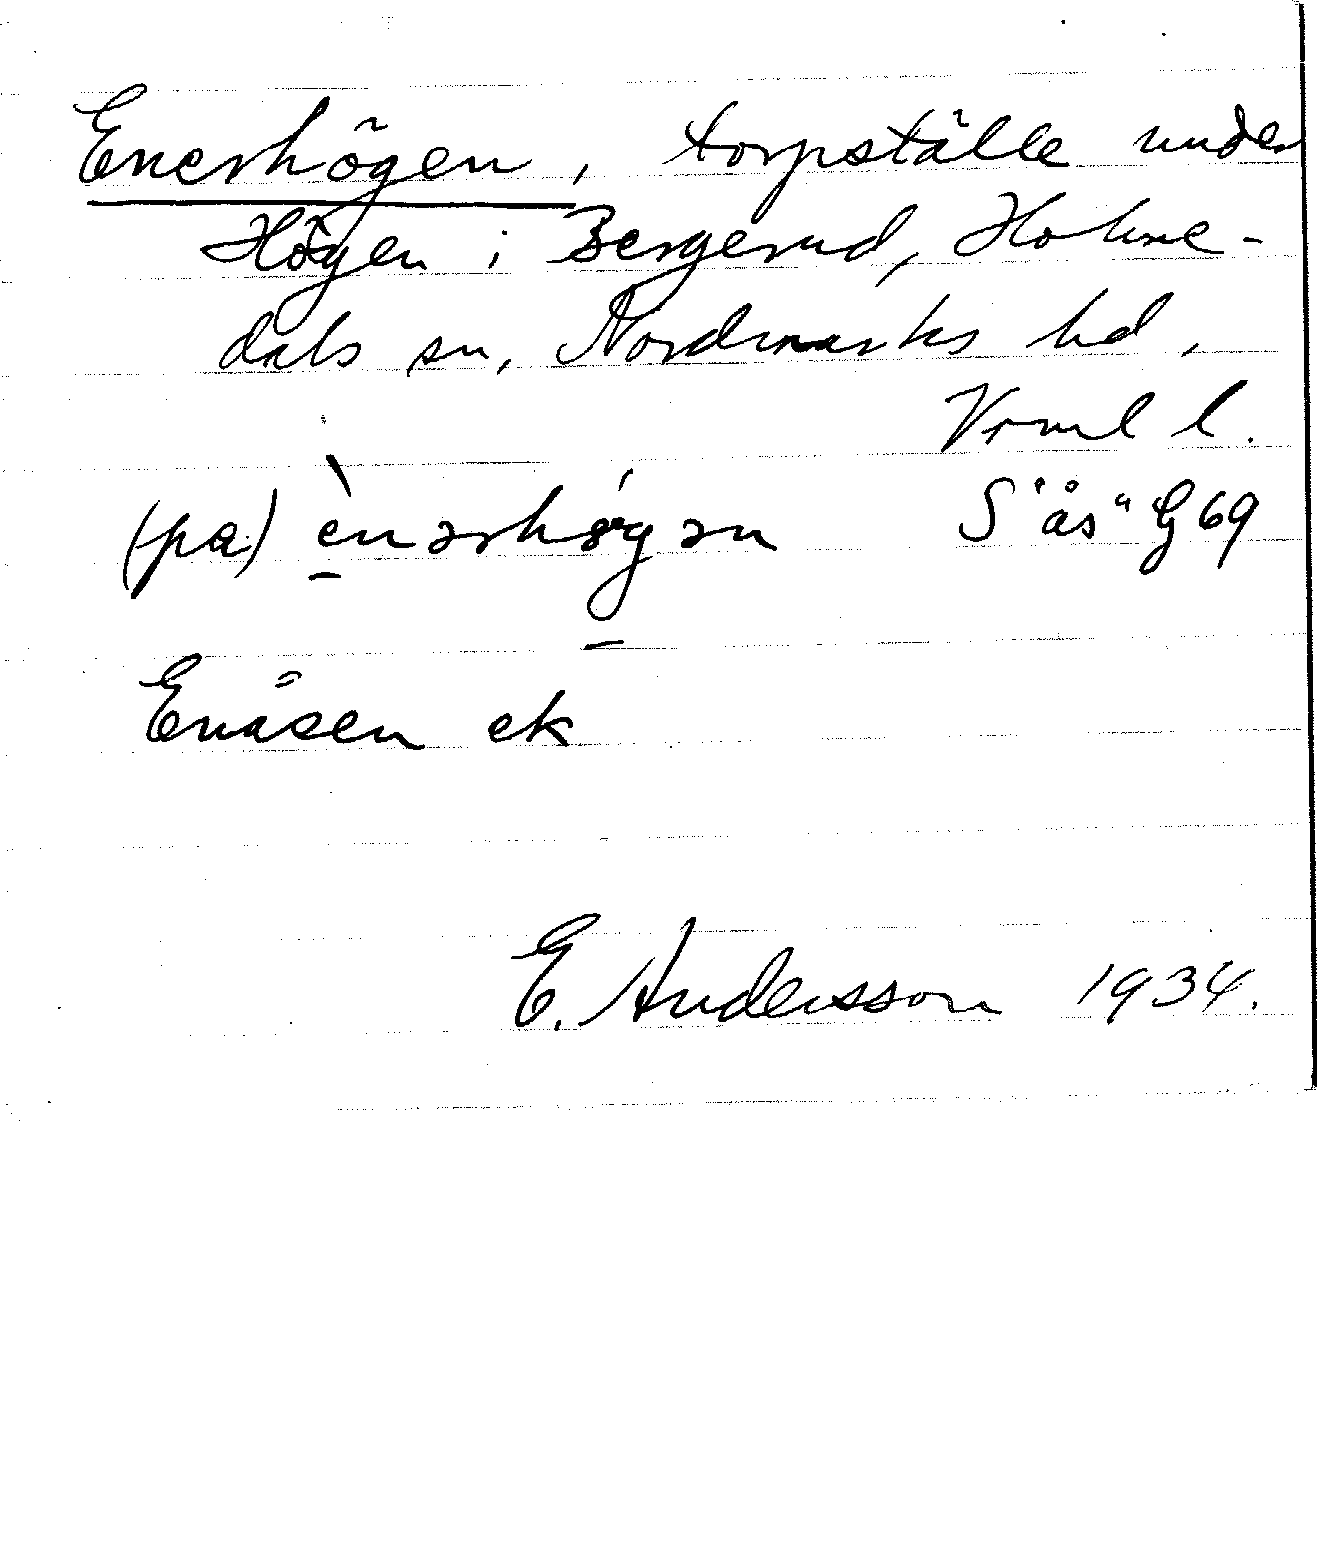 Enerhögen, torpställe under
Högen i Bergerud, Holme-
dals sn, Nordmarks hd,
Vrml l.
(pa) ènərhǿgən S "ås" G 69
Enåsen ek
E. Andersson 1934.